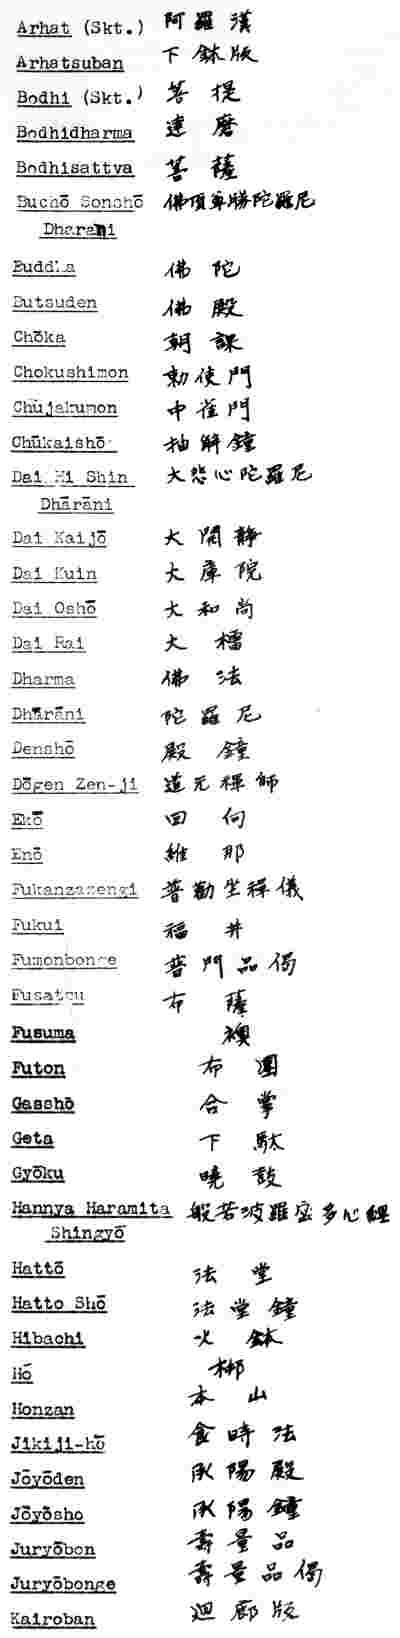 Arhat (Skt.) 阿羅漢
Arhatsuban 下鉢版
Bodhi (Skt.) 菩提
Bodhidharma 達磨
Bodhisattva 菩薩
Buchō Sonshō 佛頂尊勝陀羅尼
Dharani
Buddha 佛陀
Butsuden 佛殿
Chōka 朝課
Chokushimon 勅使門
Chūjakumon 中雀門
Chūkaishō 抽解鐘
Dai Hi Shin 大悲心陀羅尼
Dhārāni
Dai Kaijō 大開静
Dai Kuin 大庫院
Dai Oshō 大和尚
Dai Rai 大擂
Dharma 佛法
Dhārāni 陀羅尼
Denshō 殿鐘
Dōgen Zen-ji 道元禅師
Ekō 回向
Enō 維那
Fukanzazengi 普勧坐禅儀
Fukui 福井
Fumonbonge 普門品偈
Fusatsu 布薩
Fusuma 襖
Futon 布團
Gasshō 合掌
Geta 下駄
Gyōku 曉鼓
Hannya Haramita 般若波羅密多心經
Shingyō
Hattō 法堂
Hatto Shō 法堂鐘
Hibachi 火鉢
Hō 梆
Honzan 本山
Jikiji-hō 食時法
Jōyōden 承陽殿
Jōyōsho 承陽鐘
Juryōbon 壽量品
Juryōbonge 壽量品偈
Kairoban 迴廊版